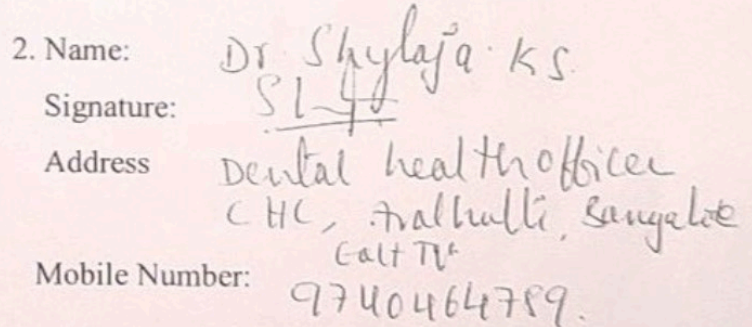 2. Name: Dr Shylaja. K S.
Signature:
Address Dental health officer
CHC, Avalhalli, Bangalore
East Tk
Mobile Number: 9740464789.